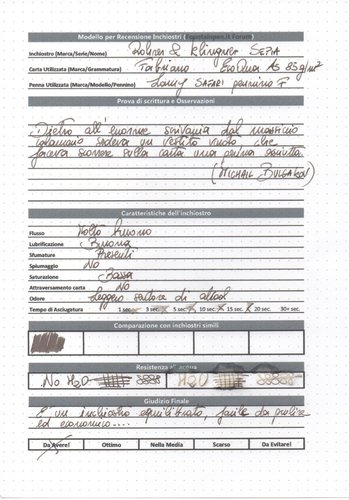 Modello per Recensione Inchiostri (Fountainpen.it Forum)
Inchiostro (Marca/Serie/Nome) Rohrer & Klingner SEPIA
Carta Utilizzata (Marca/Grammatura) Fabriano EcoQua A5 85g/m²
Penna Utilizzata (Marca/Modello/Pennino) Lamy SAFARI pennino F
Prova di scrittura e Osservazioni
Dietro all'enorme scrivania dal massiccio
calamaio sedeva un vestito vuoto che
faceva scorrere sulla carta una penna asciutta.
(MICHAIL BULGAKOV)
Caratteristiche dell'inchiostro
Flusso Molto Buono
Lubrificazione Buona
Sfumature Presenti
Spiumaggio No
Saturazione Bassa
Attraversamento carta No
Odore Leggero sentore di alcool
Tempo di Asciugatura 1 sec 3 sec 5 sec 10 sec 15 sec 20 sec. 30+ sec.
Comparazione con inchiostri simili
Resistenza all'acqua
No H2O H2O
Giudizio Finale
E' un inchiostro equilibrato, facile da pulire
ed economico....
Da Avere! Ottimo Nella Media Scarso Da Evitare!